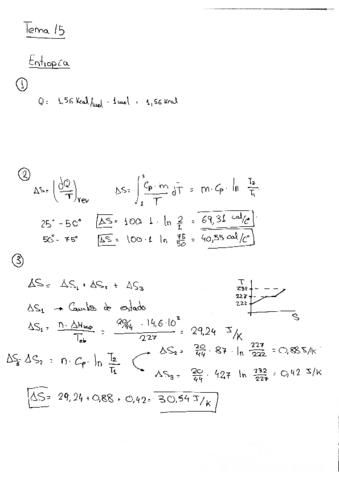 Tema 15
Entropía
①
Q: 1,56 Kcal/mol · 1 mol = 1,56 Kcal
②
ΔS = (dQ/T)rev ΔS = ∫₁² Cp·m/T dT = m·Cp·ln T₂/T₁
25° - 50° ΔS = 100·1·ln 2/1 = 69,31 cal/C°
50° - 75° ΔS = 100·1 ln 75/50 = 40,55 cal/C°
③
ΔS = ΔS₁ + ΔS₂ + ΔS₃
T
232
227
222
S
ΔS₁ → Cambio de estado
ΔS₁ = 29,24 J/K
ΔS₂ = n·Cp·ln T₂/T₁
ΔS₂ = 20/44 · 87 · ln 227/222 = 0,88 J/K
ΔS₃ = 20/44 · 427 ln 232/227 = 0,42 J/K
ΔS = 29,24 + 0,88 + 0,42 = 30,54 J/K